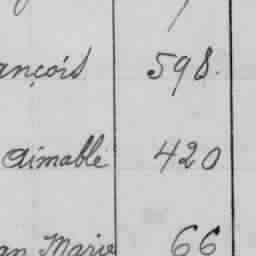 ançois 598.
Aimable 420
an Marie 66